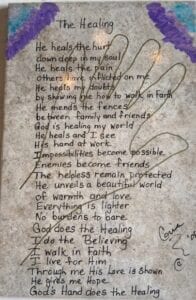 The Healing
He heals the hurt
down deep in my soul
He heals the pain
others have inflicted on me
He heals my doubts
by showing me how to walk in faith
He mends the fences
between family and friends
God is healing my world
He heals and I see
His hand at work
Impossibilities become possible
Enemies become friends
The helpless remain protected
He unveils a beautiful world
of warmth and love
Everything is lighter
No burdens to bare
God does the Healing
I do the Believing
I walk in faith
I live for Him
Through me His Love is Shown
He gives me Hope
God's Hand does the Healing